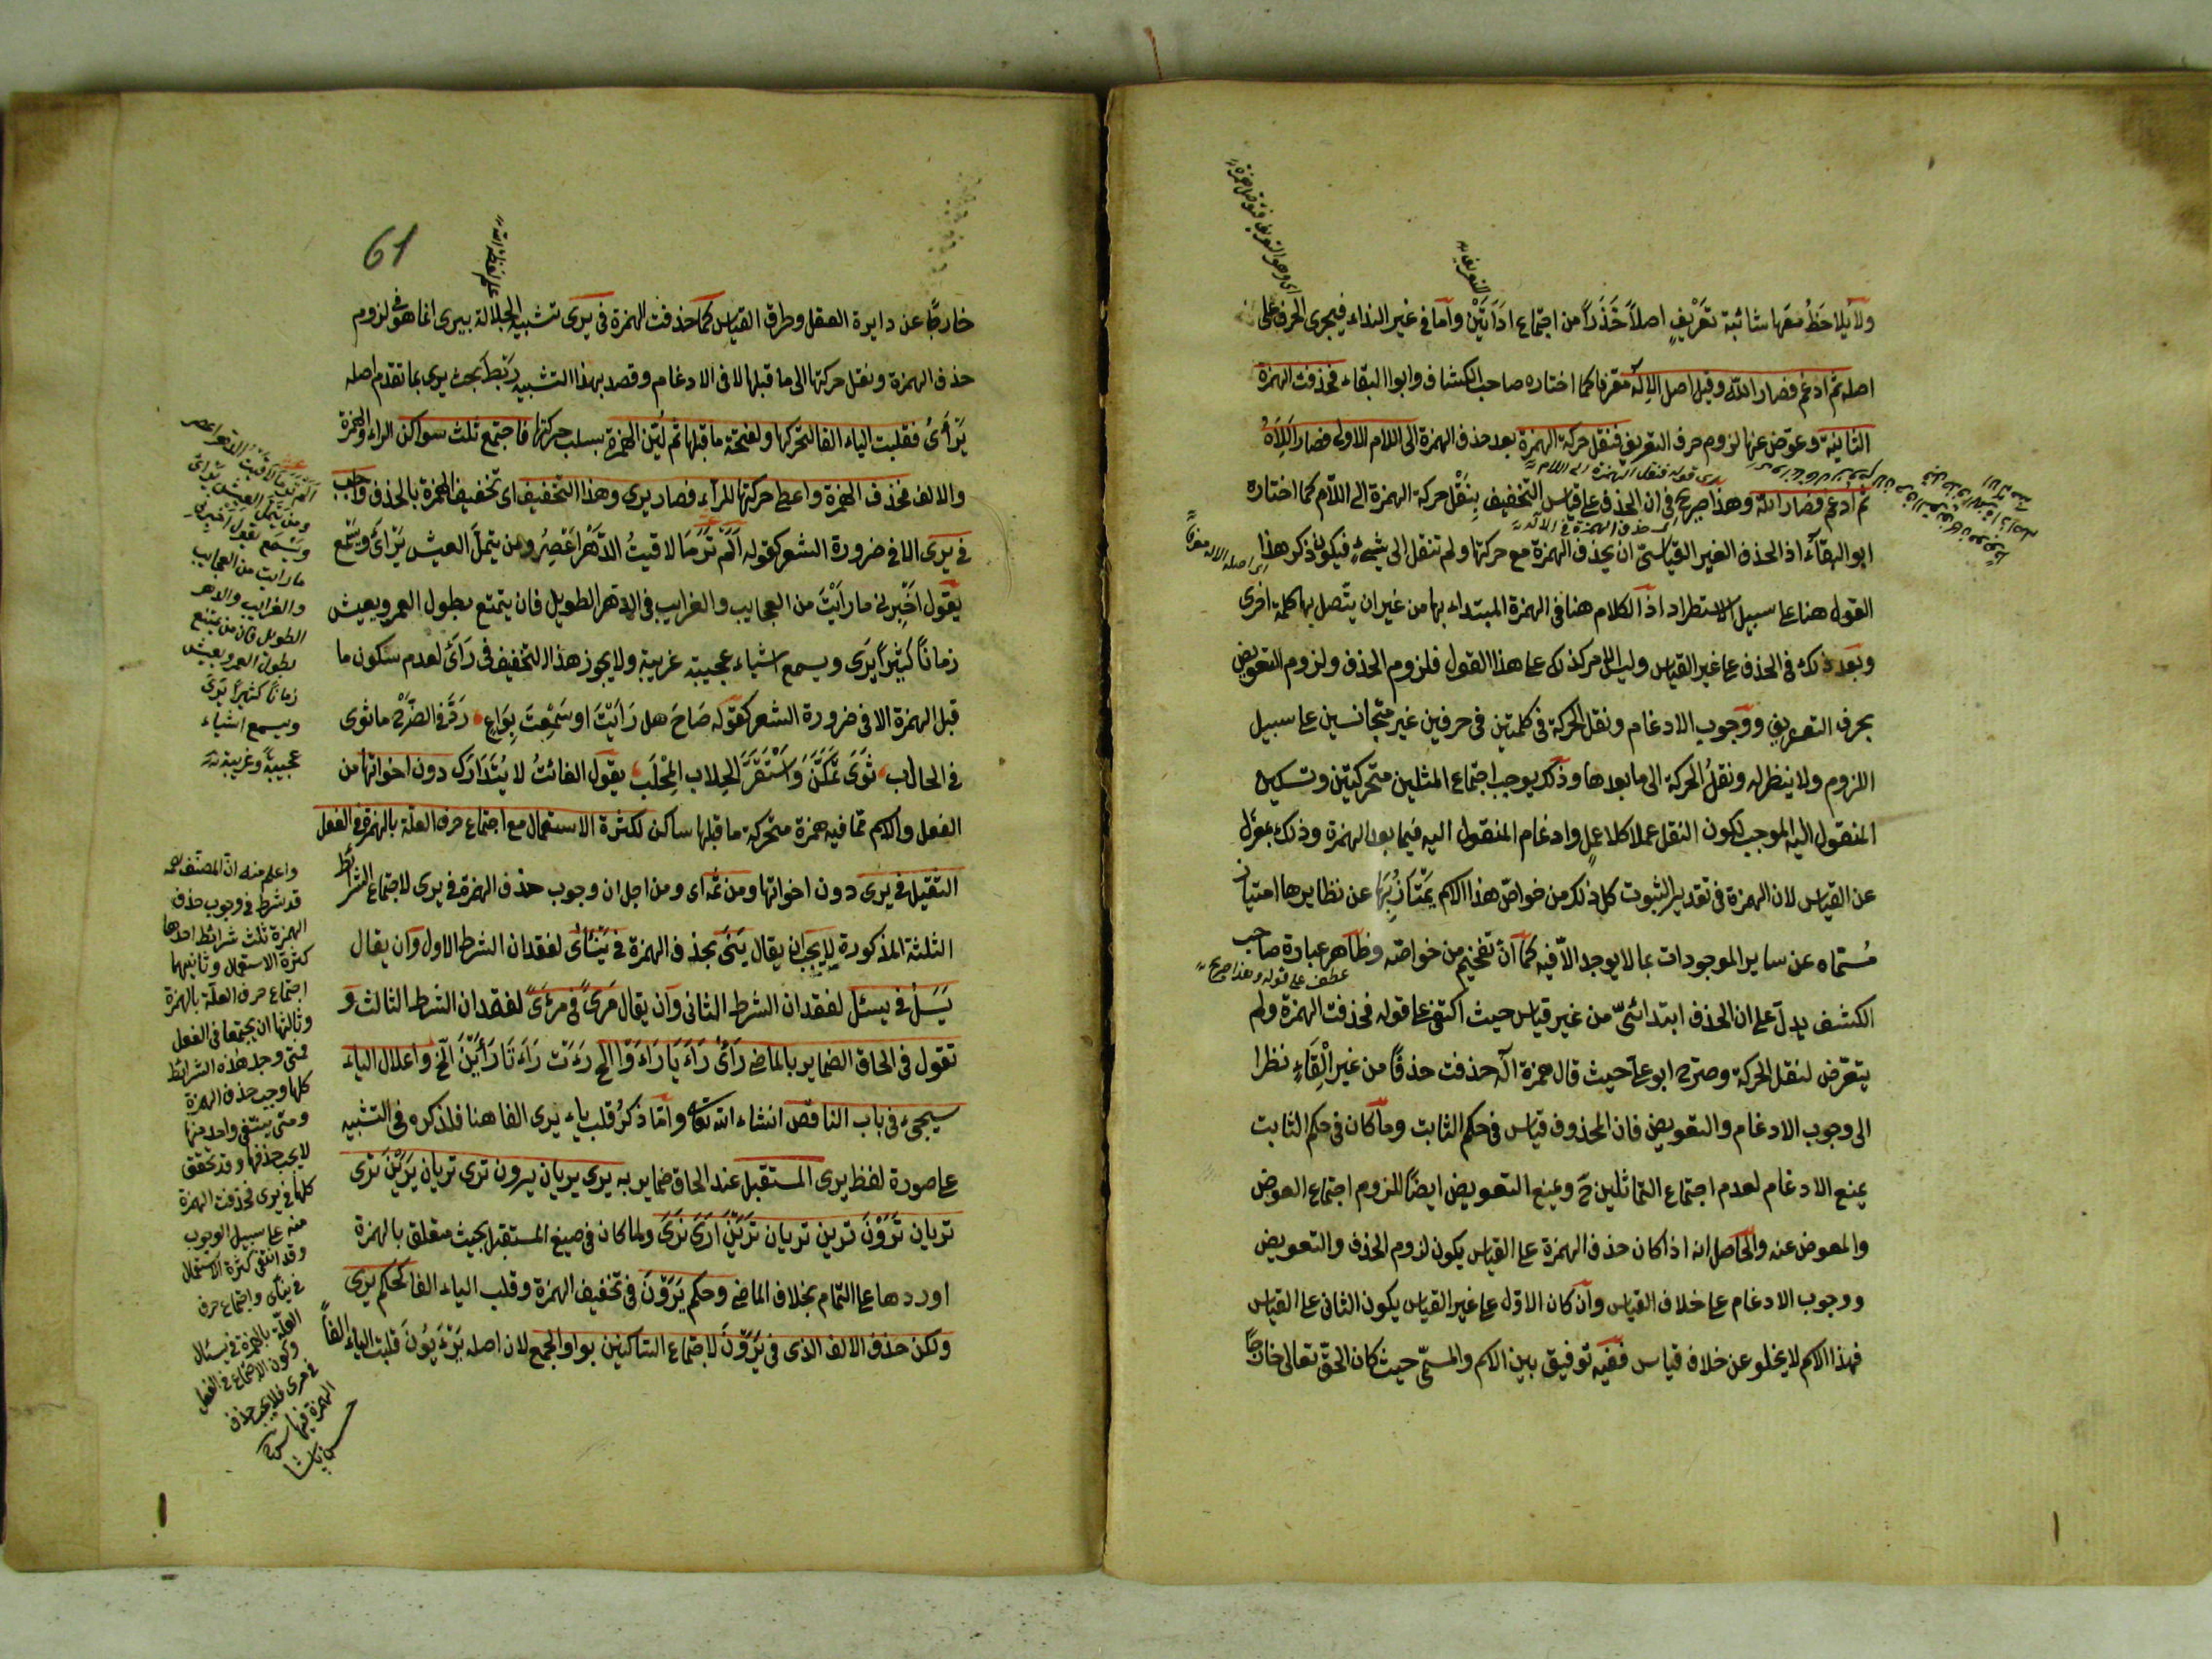 ولا يلاحظ معها شائبة تَعْرِيْفٍ اصلاً حَذَراً من اجتماع اداَتَيْن وآما في غير النداء فيجرى الحرف على
اصله ثم ادغم فصار الله وقيل اصل الإله معرفا كما اختاره صاحب الكشاف وابوا البقاء فحذفت الهمزة
الثانية وعوّض عنها لزوم حرف التعريف فنقل حركة الهمزة بعد حذف الهمزة الى اللام الاولى فصار اَلِلاَهُ
ثم ادغم فصار الله وهذا صريح في ان الحذف على قياس التخفيف بنَقْل حركة الهمزة الى اللّام كما اختاره
ابو البقآء اذ الحذف الغير القياسىّ ان يحذف الهمزة مع حركتها ولم تنقل الى شيءٍ فيكون ذكر هذا
القول هنا على سبيل الاستطراد اذ الكلام هنا في الهمزة المبتداء بها من غير ان يتّصل بها كلمة اخرى
وبعد ذكره في الحذف على غير القياس وليس الامر كذلك على هذا القول فلزوم الحذف ولزوم التعويض
بحرف التعريف ووجوب الادغام ونقل الحركة في كلمتين في حرفين غير متجانسين على سبيل
اللزوم ولا ينظر له ونقلُ الحركة الى ما بعدها وذلك يوجب اجتماع المثلين متحركتين وتسكين
المنقول اليه الموجب لكون النقل عملا كلا عملٍ وادغام المنقول اليه فيما بعد الهمزة وذلك بمعزل
عن القياس لان الهمزة في تقدير الثبوت كل ذلك من خواصّ هذا الاسم يمتاز بها عن نظايرها امتياز
مُسمّاه عن ساير الموجودات بما لا يوجد الّا فيه كما انّ تفخيم من خواصّه وظاهر عبارة صاحب
الكشف يدلّ على ان الحذف ابتدائىّ من غير قياس حيث اكتفى على قوله فحذفت الهمزة ولم
يتعرّض لنقل الحركة وصرّح ابو على حيث قال همزة آله حذفت حذفاً من غير اِلْقَاءٍ نظرا
الى وجوب الادغام والتعويض فان المحذوف قياس في حكم الثابت وما كان في حكم الثابت
يمنع الادغام لعدم اجتماع التماثلين ح ويمنع التعويض ايضاً للزوم اجتماع العوض
والمعوض عنه والحاصل انه اذا كان حذف الهمزة على القياس يكون لزوم الحذف والتعويض
ووجوب الادغام على خلاف القياس وان كان الاوّل على غير القياس يكون الثانى على القياس
فهذا الاسم لا يخلو عن خلاف قياس ففيه توفيق بين الاسم والمسمّى حيث كان الحقّ تعالى خارجاً
عطف على قوله وهذا صريح
61
خارجًا عن دايرة العقل وطرق القياس كما حذفت الهمزة في يرى تشبيه الجلالة بيرى انما هو في لزوم
حذف الهمزة ونقل حركتها الى ما قبلها لا في الادغام وقصد بهذا التشبيه ربط بحث يرى بما تقدم اصله
يَرْأَىُ فقلبت الياء الفا لتحركها ولفتحة ما قبلها ثم ليّن الهمزة بسلب حركتها فاجتمع ثلث سواكن الراء والهمزة
والالف فحذف الهمزة واعطى حركتها للرآء فصار يرى وهذا التخفيف اى تخفيف الهمزة بالحذف واجب
في يرى الا في ضرورة الشعر كقوله اَلَمْ تَرَ مَا لاقيتُ الدَّهْرُ اَعْصِرُ ومن يتملّ العيش يَرْأَى وَيَسْمَع
يقول اَخْبِرْنى ما رأيْتَ من العجايب والغرايب في الدهر الطويل فان يتمتع بطول العمر ويعيش
زماناً كثيراً يَرَى ويسمع اشياء عجيبة غريبة ولا يجوز هذا التخفيف في رَأَىَ لعدم سكون ما
قبل الهمزة الا في ضرورة الشعر كقوله صَاحَ هل رَأَيْتَ او سَمِعْتَ بِرَاعٍ رَدَّ في الضَّرْع ما ثوى
في الحالب ثَوَى تَمَكَّنَ وَاسْتَقَرَّ الحِلاب المِحْلَب يقول الفائتُ لا يُتَدَارَك دون اخواتها من
الفعل والاسم مما فيه همزة متحركة ما قبلها ساكن لكثرة الاستعمال مع اجتماع حرف العلة بالهمزة في الفعل
الثقيل في يرى دون اخواتها ومن ثمه اى ومن اجل ان وجوب حذف الهمزة في يرى لاجتماع الشرائط
الثلثة المذكورة لا يجب ان يقال يَنَىَ بحذف الهمزة في يَنْأَىُ لفقدان الشرط الاول وان يقال
يَسَلُ في يسئل لفقدان الشرط الثانى وان يقال مَرىً في مَرْئىً لفقدان الشرط الثالث و
تقول في الحاق الضماير بالماضى رَأَىُ رَاَىَ يَا رَاَوْا الى رَءَتْ رَأَتَا رَأَيْنَ الخ واعلال الياء
سيجىء في باب الناقص انشاء الله تعالى واما ذكرُ قلب ياء يرى الفا هنا فلذكره في التشبيه
على صورة لفظ يرى المستقبل عند الحاق ضماير به يرى يريان يرون ترى تريان يَرَيْنَ تَرَى
تريان تَرَوْنَ ترين تريان تَرَيْنَ اَرَى نَرَى ولما كان في صيغ المستقبل بحث متعلق بالهمزة
اوردها على التمام بخلاف الماضى وحكم يَرَوْنَ في تخفيف الهمزة وقلب الياء الفا كحكم يرى
ولكن حذف الالف الذى في يَرَوْنَ لاجتماع الساكنين بواو الجمع لان اصله يَرْءَيُونَ قلبت الياء الفاً
ومن يتمل العيش يرأى
ويسمع يقول اخبرنى
ما رايت من العجايب
والغرايب والدهر
الطويل فان من يتمتع
بطول العمر ويعيش
زماناً كثيراً يرى
ويسمع اشياء
عجيبة وغريبة
واعلم منه ان المصنف رحمه
قد شرط في وجوب حذف
الهمزة ثلث شرائط احدها
كثرة الاستعمال وثانيهما
اجتماع حرف العلّة بالهمزة
وثالثها ان يجتمعا في الفعل
فمتى وجد هذه الشرائط
كلها وجب حذف الهمزة
ومتى ينتفى واحد منها
لا يجب حذفها وقد تحقق
كلها في يرى فحذفت الهمزة
منه على سبيل الوجوب
وقد انتفى كثرة الاستعمال
في ينأى واجتماع حرف
العلّة بالهمزة في يسئال
وكون الاجتماع في الفعل
في مرى فلا يجب حذف
الهمزة فيها
حسن پاشا